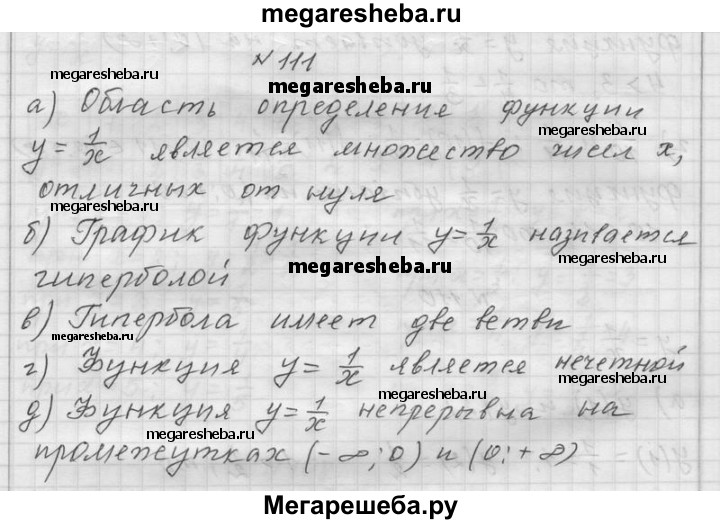 megaresheba.ru
№ 111
megaresheba.ru megaresheba.ru
а) Область определения функции
megaresheba.ru
y = 1/x является множество чисел x,
отличных от нуля
megaresheba.ru megaresheba.ru
б) График функции y = 1/x називается
гиперболой
megaresheba.ru megaresheba.ru
в) Гипербола имеет две ветви
megaresheba.ru
г) Функция y = 1/x является нечетной
megaresheba.ru
д) Функция y = 1/x непрерывна на
megaresheba.ru megaresheba.ru
промежутках (-∞; 0) и (0; +∞)
Мегарешеба.ру